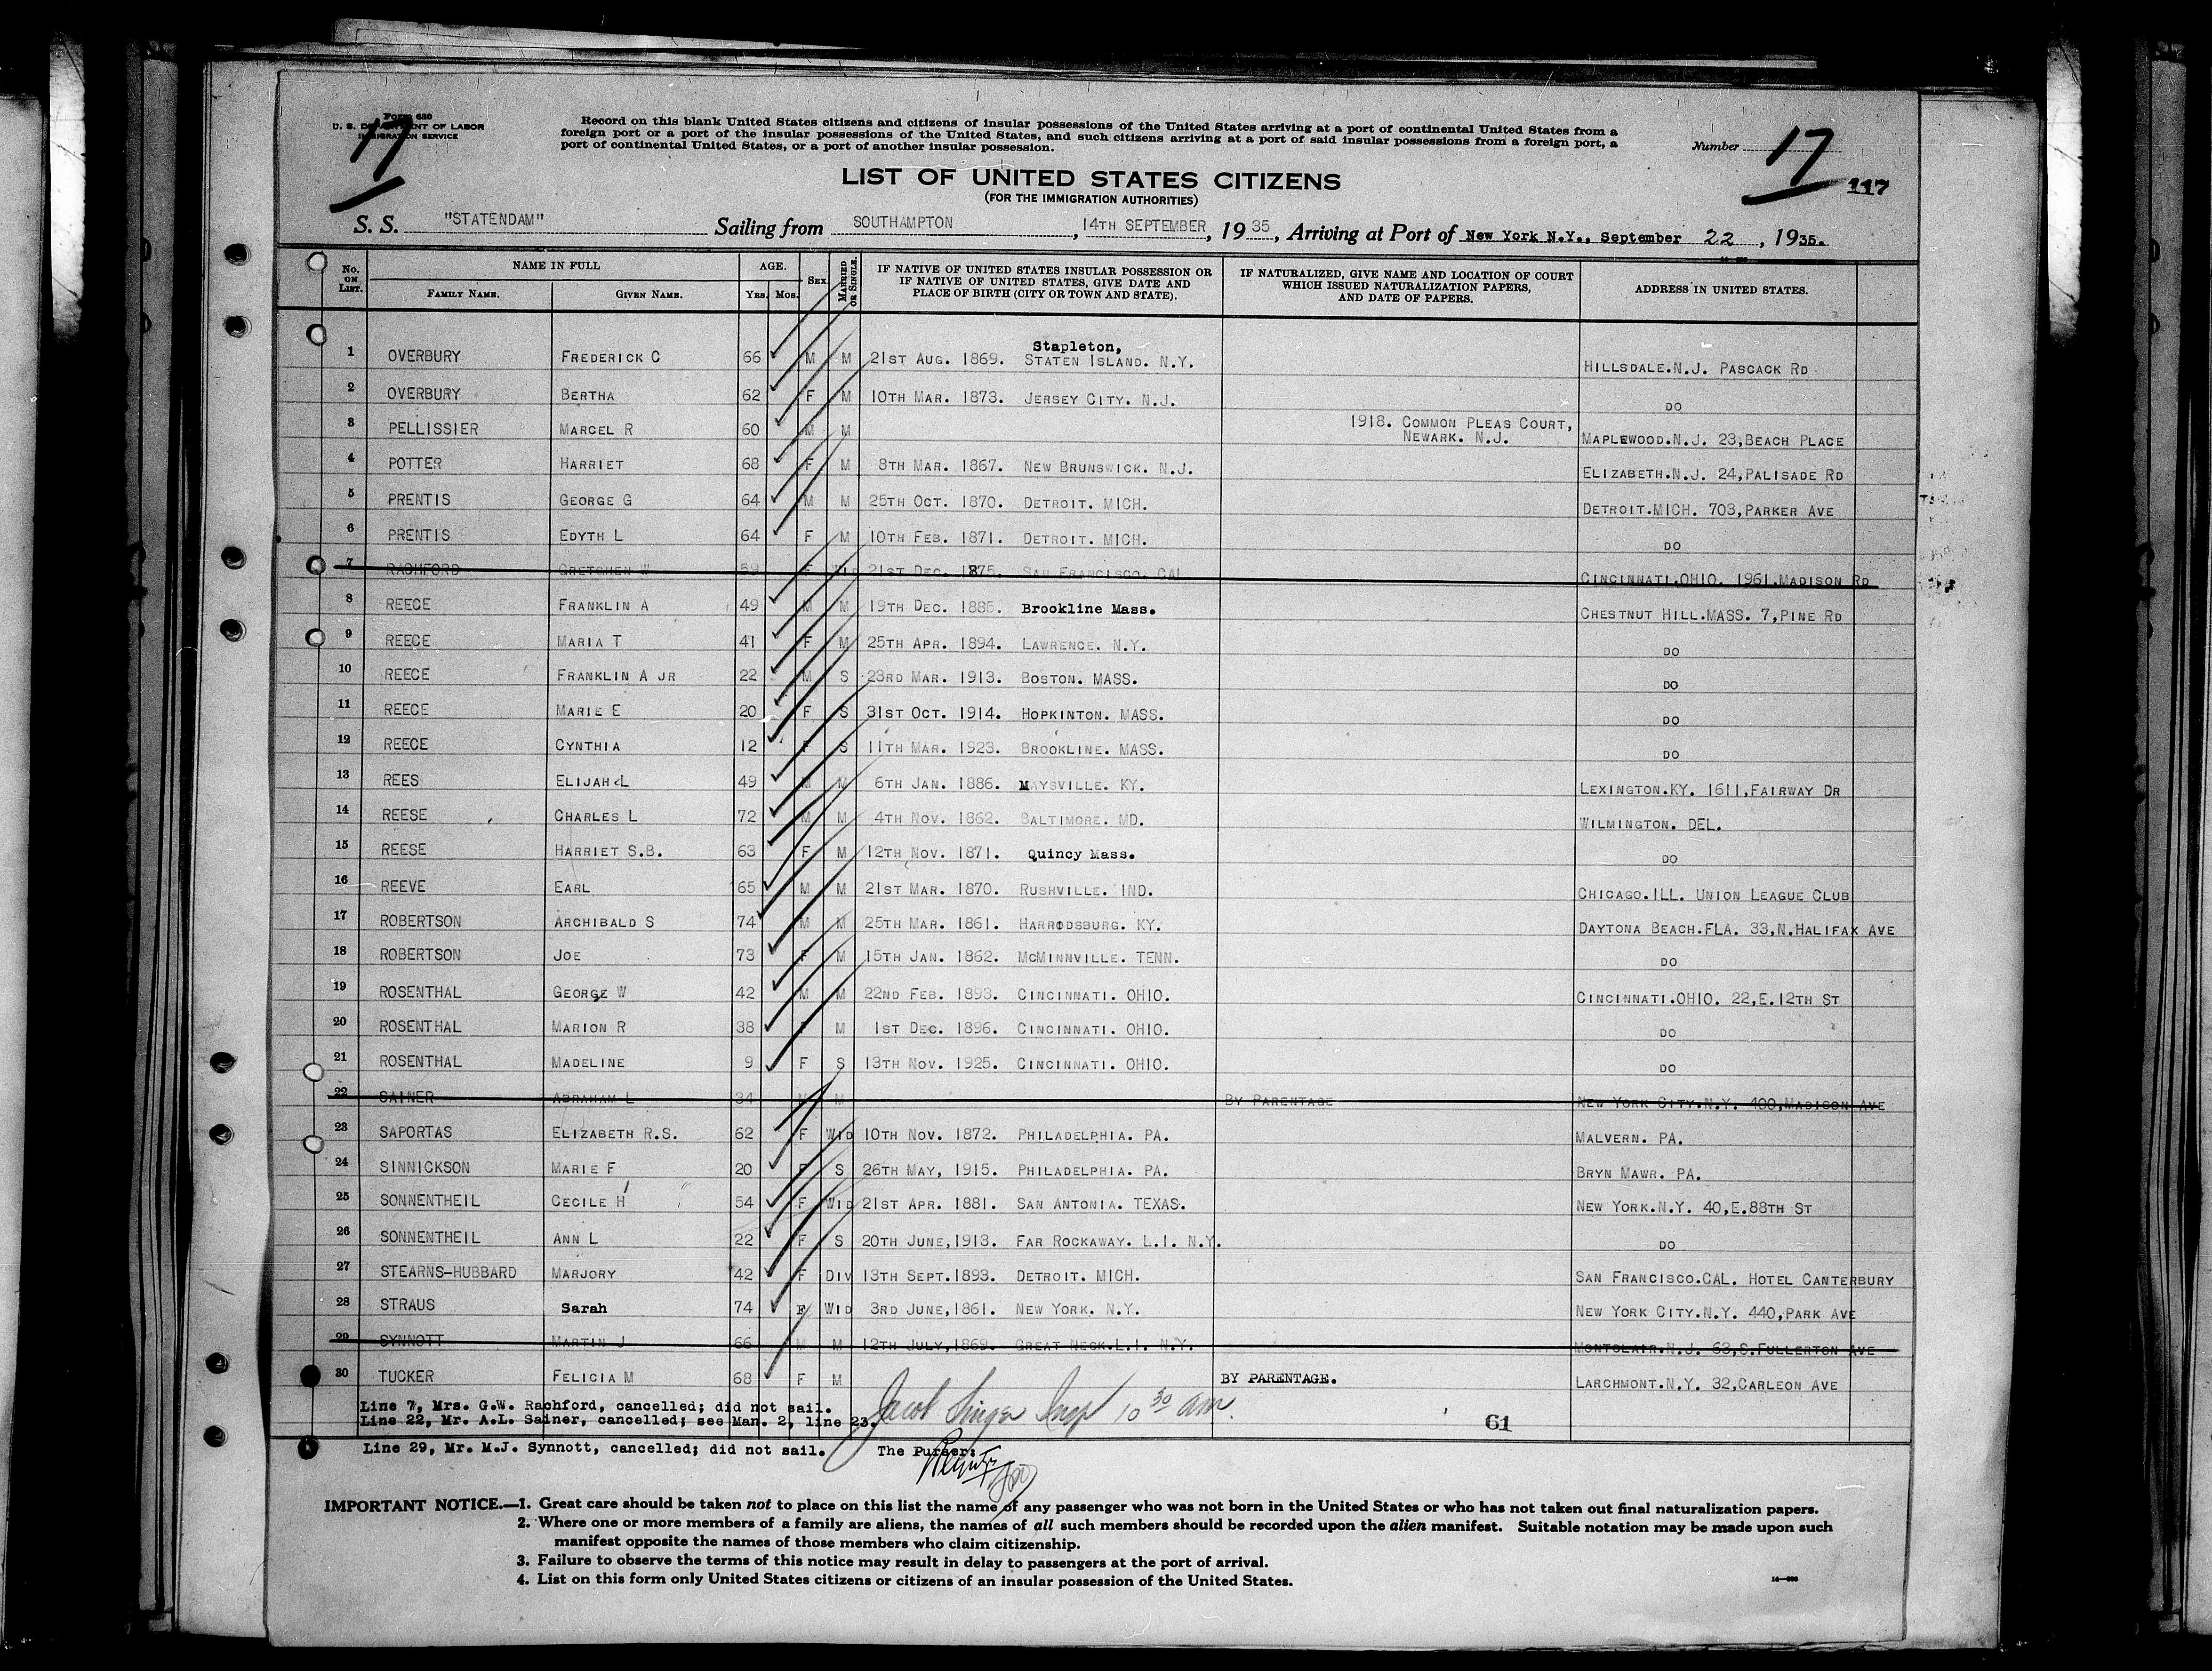 Form 630
U. S. DEPARTMENT OF LABOR
IMMIGRATION SERVICE
17
Record on this blank United States citizens and citizens of insular possessions of the United States arriving at a port of continental United States from a
foreign port or a port of the insular possessions of the United States, and such citizens arriving at a port of said insular possessions from a foreign port, a
port of continental United States, or a port of another insular possession.
Number 17
117
LIST OF UNITED STATES CITIZENS
(FOR THE IMMIGRATION AUTHORITIES)
S. S. "STATENDAM" Sailing from SOUTHAMPTON, 14TH SEPTEMBER, 1935, Arriving at Port of New York N.Y., September 22, 1935.
No. ON LIST. NAME IN FULL AGE. SEX MARRIED OR SINGLE. IF NATIVE OF UNITED STATES INSULAR POSSESSION OR IF NATIVE OF UNITED STATES, GIVE DATE AND PLACE OF BIRTH (CITY OR TOWN AND STATE). IF NATURALIZED, GIVE NAME AND LOCATION OF COURT WHICH ISSUED NATURALIZATION PAPERS, AND DATE OF PAPERS. ADDRESS IN UNITED STATES.
FAMILY NAME. GIVEN NAME. YRS. MOS.
1 OVERBURY FREDERICK C 66 M M 21ST AUG. 1869. Stapleton, STATEN ISLAND. N.Y. HILLSDALE.N.J. PASCACK RD
2 OVERBURY BERTHA 62 F M 10TH MAR. 1873. JERSEY CITY. N.J. DO
3 PELLISSIER MARCEL R 60 M M 1918. COMMON PLEAS COURT, NEWARK. N.J. MAPLEWOOD.N.J. 23,BEACH PLACE
4 POTTER HARRIET 68 F M 8TH MAR. 1867. NEW BRUNSWICK. N.J. ELIZABETH.N.J. 24,PALISADE RD
5 PRENTIS GEORGE G 64 M M 25TH OCT. 1870. DETROIT. MICH. DETROIT.MICH. 703,PARKER AVE
6 PRENTIS EDYTH L 64 F M 10TH FEB. 1871. DETROIT. MICH. DO
7 RACHFORD GRETCHEN W 59 F WID 21ST DEC. 1875. SAN FRANCISCO. CAL. CINCINNATI.OHIO. 1961,MADISON RD
8 REECE FRANKLIN A 49 M M 19TH DEC. 1885. Brookline Mass. CHESTNUT HILL.MASS. 7,PINE RD
9 REECE MARIA T 41 F M 25TH APR. 1894. LAWRENCE. N.Y. DO
10 REECE FRANKLIN A JR 22 M S 23RD MAR. 1913. BOSTON. MASS. DO
11 REECE MARIE E 20 F S 31ST OCT. 1914. HOPKINTON. MASS. DO
12 REECE CYNTHIA 12 F S 11TH MAR. 1923. BROOKLINE. MASS. DO
13 REES ELIJAH L 49 M M 6TH JAN. 1886. MAYSVILLE. KY. LEXINGTON.KY. 1611,FAIRWAY DR
14 REESE CHARLES L 72 M M 4TH NOV. 1862. BALTIMORE. MD. WILMINGTON. DEL.
15 REESE HARRIET S.B. 63 F M 12TH NOV. 1871. Quincy Mass. DO
16 REEVE EARL 65 M M 21ST MAR. 1870. RUSHVILLE. IND. CHICAGO.ILL. UNION LEAGUE CLUB
17 ROBERTSON ARCHIBALD S 74 M M 25TH MAR. 1861. HARRODSBURG. KY. DAYTONA BEACH.FLA. 33,N.HALIFAX AVE
18 ROBERTSON JOE 73 F M 15TH JAN. 1862. MCMINNVILLE. TENN. DO
19 ROSENTHAL GEORGE W 42 M M 22ND FEB. 1893. CINCINNATI. OHIO. CINCINNATI.OHIO. 22,E.12TH ST
20 ROSENTHAL MARION R 38 F M 1ST DEC. 1896. CINCINNATI. OHIO. DO
21 ROSENTHAL MADELINE 9 F S 13TH NOV. 1925. CINCINNATI. OHIO. DO
22 SAINER ABRAHAM L 34 M M BY PARENTAGE NEW YORK CITY.N.Y. 400,MADISON AVE
23 SAPORTAS ELIZABETH R.S. 62 F WID 10TH NOV. 1872. PHILADELPHIA. PA. MALVERN. PA.
24 SINNICKSON MARIE F 20 F S 26TH MAY, 1915. PHILADELPHIA. PA. BRYN MAWR. PA.
25 SONNENTHEIL CECILE H 54 F WID 21ST APR. 1881. SAN ANTONIA. TEXAS. NEW YORK.N.Y. 40,E.88TH ST
26 SONNENTHEIL ANN L 22 F S 20TH JUNE,1913. FAR ROCKAWAY. L.I. N.Y. DO
27 STEARNS-HUBBARD MARJORY 42 F DIV 13TH SEPT.1893. DETROIT. MICH. SAN FRANCISCO.CAL. HOTEL CANTERBURY
28 STRAUS Sarah 74 F WID 3RD JUNE,1861. NEW YORK. N.Y. NEW YORK CITY.N.Y. 440,PARK AVE
29 SYNNOTT MARTIN J 66 M M 12TH JULY,1869. GREAT NECK.L.I. N.Y. MONTCLAIR.N.J. 63,S.FULLERTON AVE
30 TUCKER FELICIA M 68 F M BY PARENTAGE. LARCHMONT.N.Y. 32,CARLEON AVE
Line 7, Mrs. G.W. Rachford, cancelled; did not sail.
Line 22, Mr. A.L. Sainer, cancelled; see Man. 2, line 23.
Jacob Singer Insp 10 30 am
61
Line 29, Mr. M.J. Synnott, cancelled; did not sail. The Purser:
IMPORTANT NOTICE.—1. Great care should be taken not to place on this list the name of any passenger who was not born in the United States or who has not taken out final naturalization papers.
2. Where one or more members of a family are aliens, the names of all such members should be recorded upon the alien manifest. Suitable notation may be made upon such
manifest opposite the names of those members who claim citizenship.
3. Failure to observe the terms of this notice may result in delay to passengers at the port of arrival.
4. List on this form only United States citizens or citizens of an insular possession of the United States.